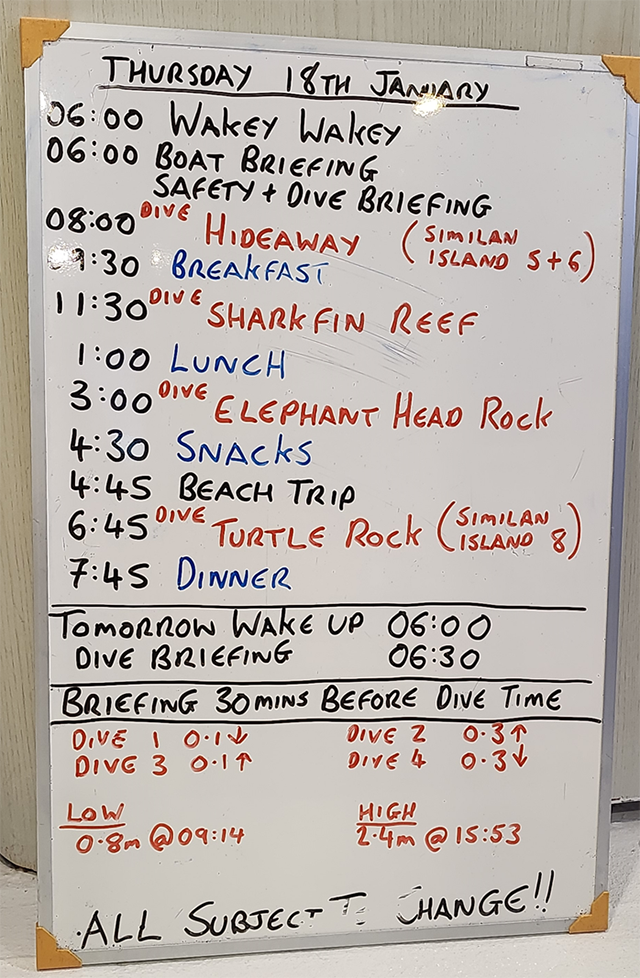 THURSDAY 18TH JANUARY
06:00 WAKEY WAKEY
06:00 BOAT BRIEFING
SAFETY + DIVE BRIEFING
08:00 DIVE HIDEAWAY (SIMILAN ISLAND 5+6)
09:30 BREAKFAST
11:30 DIVE SHARKFIN REEF
1:00 LUNCH
3:00 DIVE ELEPHANT HEAD ROCK
4:30 SNACKS
4:45 BEACH TRIP
6:45 DIVE TURTLE ROCK (SIMILAN ISLAND 8)
7:45 DINNER
TOMORROW WAKE UP 06:00
DIVE BRIEFING 06:30
BRIEFING 30MINS BEFORE DIVE TIME
DIVE 1 0.1↓ DIVE 2 0.3↑
DIVE 3 0.1↑ DIVE 4 0.3↓
LOW HIGH
0.8m @ 09:14 2.4m @ 15:53
ALL SUBJECT TO CHANGE!!